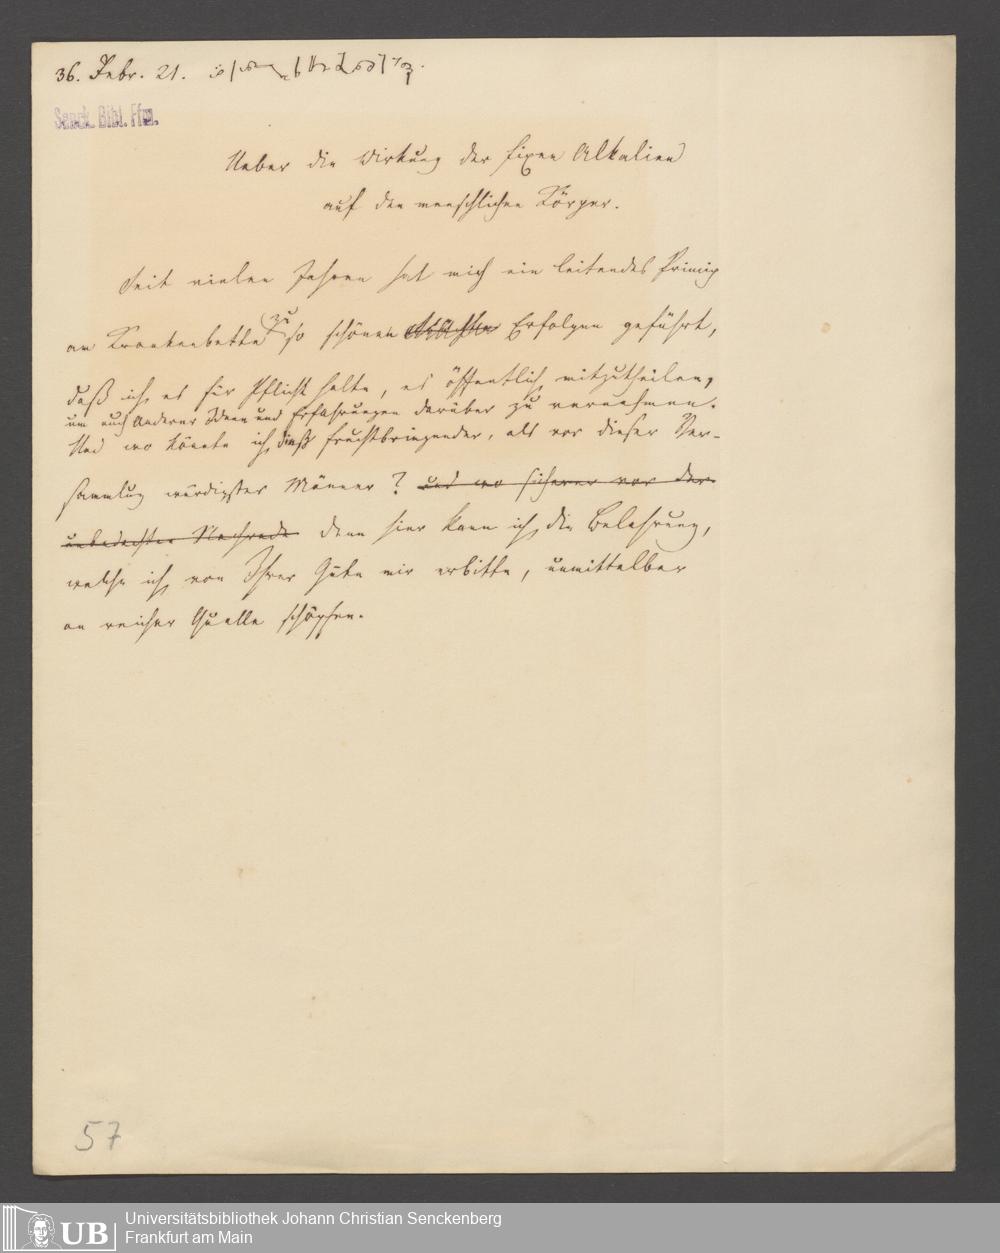 36. Febr. 21.
Senck. Bibl. Ffm.
Ueber die Wirkung der fixen Alkalien
auf den menschlichen Körper.
Seit vielen Jahren hat mich ein leitendes Princip
am Krankenbette zu so schönen Erfolgen geführt,
daß ich es für Pflicht halte, es öffentlich mitzutheilen,
um auch Anderer Ideen und Erfahrungen darüber zu vernehmen.
Und wo könnte ich dieß fruchtbringender, als vor dieser Ver-
sammlung würdigster Männer? und wo sicherer vor der
unbedachten Nachrede denn hier kann ich die Belehrung,
welche ich von Ihrer Güte mir erbitte, unmittelbar
an reicher Quelle schöpfen.
57
UB
Universitätsbibliothek Johann Christian Senckenberg
Frankfurt am Main